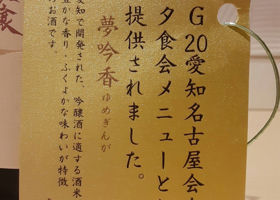 G20愛知名古屋会
夕食会メニューと
提供されました。
夢吟香
ゆめぎんが
愛知で開発された、吟醸酒に適する酒米
豊かな香り・ふくよかな味わいが特徴
のお酒です。